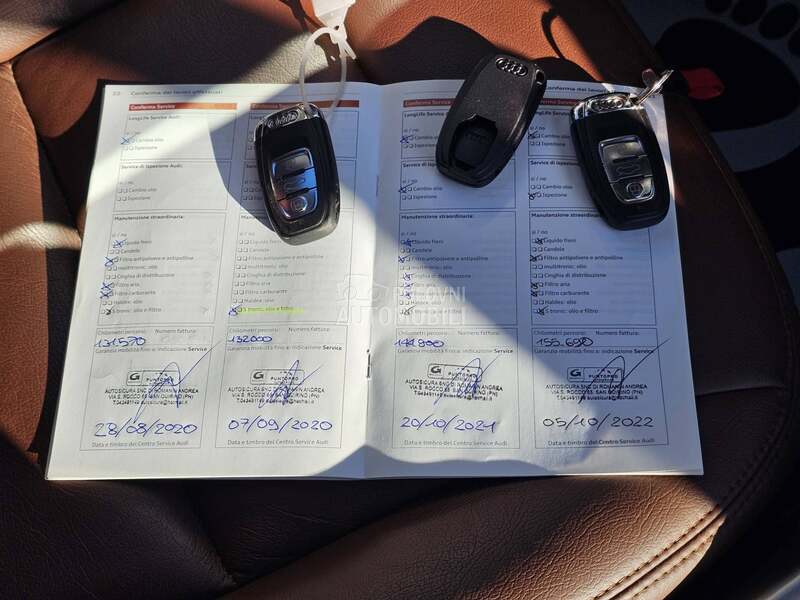 22 Conferma dei lavori effettuati
Conferma Service
LongLife Service Audi:
sì / no
Cambio olio
Ispezione
Service di ispezione Audi:
sì / no
Cambio olio
Ispezione
Manutenzione straordinaria:
sì / no
Liquido freni
Candele
Filtro antipolvere e antipolline
multitronic: olio
Cinghia di distribuzione
Filtro aria
Filtro carburante
Haldex: olio
S tronic: olio e filtro
Chilometri percorsi: Numero fattura:
131.570
Garanzia mobilità fino a: indicazione Service
G
PUNTOPRO
AUTOSICURA SNC DI ROMANIN ANDREA
VIA S. ROCCO 65 SAN QUIRINO (PN)
28/08/2020
Data e timbro del Centro Service Audi
Conferma
sì / no
Manutenzione straordinaria:
sì / no
Liquido freni
Candele
Filtro antipolvere e antipolline
multitronic: olio
Cinghia di distribuzione
Filtro aria
Filtro carburante
Haldex: olio
S tronic: olio e filtro
Chilometri percorsi: Numero fattura:
132000
Garanzia mobilità fino a: indicazione Service
G
PUNTOPRO
AUTOSICURA SNC DI ROMANIN ANDREA
VIA S. ROCCO 65 SAN QUIRINO (PN)
07/09/2020
Data e timbro del Centro Service Audi
Conferma Service
LongLife Service
sì / no
Cambio olio
Ispezione
Service di
sì / no
Cambio olio
Ispezione
Manutenzione straordinaria:
sì / no
Liquido freni
Candele
Filtro antipolvere e antipolline
multitronic: olio
Cinghia di distribuzione
Filtro aria
Filtro carburante
Haldex: olio
S tronic: olio e filtro
Chilometri percorsi: Numero fattura:
Garanzia mobilità fino a: indicazione Service
G
PUNTOPRO
AUTOSICURA SNC DI ROMANIN ANDREA
VIA S. ROCCO 65 SAN QUIRINO (PN)
20/10/2021
Data e timbro del Centro Service Audi
Conferma dei
Conferma Service
LongLife Service
sì / no
Cambio olio
Ispezione
Service di ispezione
sì / no
Cambio olio
Ispezione
Manutenzione straordinaria:
sì / no
Liquido freni
Candele
Filtro antipolvere e antipolline
multitronic: olio
Cinghia di distribuzione
Filtro aria
Filtro carburante
Haldex: olio
S tronic: olio e filtro
Chilometri percorsi: Numero fattura:
155.690
Garanzia mobilità fino a: indicazione Service
G
PUNTOPRO
AUTOSICURA SNC DI ROMANIN ANDREA
VIA S. ROCCO 65 SAN QUIRINO (PN)
05/10/2022
Data e timbro del Centro Service Audi
AUTOMOBILI